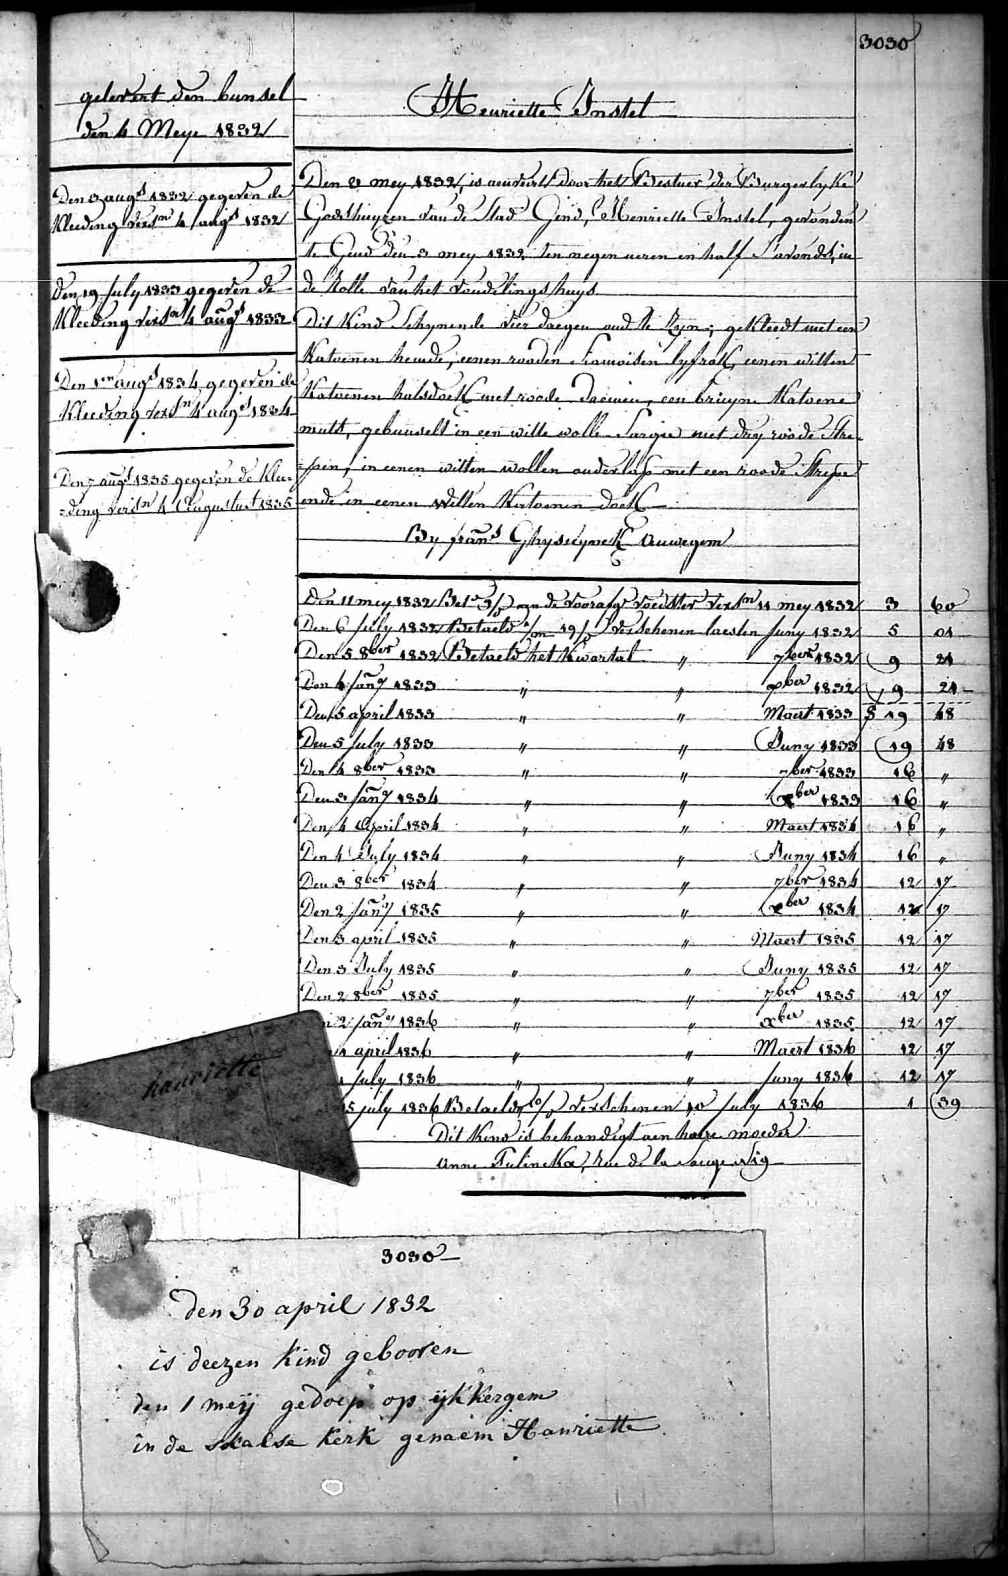 3030
gelevert den bunsel
den 4 Meye 1832
Henriette Instel
Den 3 augs 1832 gegeven de
Kleeding versn 4 augs 1832
Den 19 July 1833 gegeven de
Kleeding versn 4 augs 1833
Den 1en augs 1834 gegeven de
Kleeding versn 4 augs 1834
Den 7 augs 1835 gegeven de Klee-
-ding versn 4 Augustus 1835
Den 3 mey 1832, is aenveird door het Bestuer der Burgerlyke
Godshuyzen van de Stad Gend, Henriette Instel, gevonden
te Gend den 3 mey 1832 ten negen ueren en half s'avonds, in
de Rolle van het vondelingshuys
Dit Kind schynende vier daegen oud te zyn; gekleedt met een
Katoenen hemde, eenen rooden Siamoisen lyfrok, eenen witten
Katoenen halsdoek met roode, een bruyne Katoene
muts, gebunselt in een witte wolle Sargie met dry roode Stre-
-pen, in eenen witten wollen onderlap met een roode Strepe
ende in eenen witten Katoenen doek
By frans Ghyselynck Auwegem
Den 11 mey 1832 Bet. 9/d aen de voorage voedster versn 11 mey 1832 3 60
Den 6 July 1832 Betaeld 1/m 19/d verschenen laesten Juny 1832 5 01
Den 5 8ber 1832 Betaeld het Kwartal " 7ber 1832 9 24
Den 4 Jany 1833 " " xber 1832 9 24
Den 5 april 1833 " " Maert 1833 19 48
Den 5 July 1833 " " Juny 1833 19 48
Den 4 8ber 1833 " " 7ber 1833 16 "
Den 3 Jany 1834 " " xber 1833 16 "
Den 4 April 1834 " " Maert 1834 16 "
Den 4 July 1834 " " Juny 1834 16 "
Den 3 8ber 1834 " " 7ber 1834 12 17
Den 2 Jany 1835 " " xber 1834 12 17
Den 3 april 1835 " " Maert 1835 12 17
Den 3 July 1835 " " Juny 1835 12 17
Den 2 8ber 1835 " " 7ber 1835 12 17
2 Jany 1836 " " xber 1835 12 17
1 april 1836 " " Maert 1836 12 17
1 July 1836 " " Juny 1836 12 17
15 July 1836 Betaeld 10/d verschenen 10 July 1836 1 39
Dit Kind is behandigt aen haere moeder
Anne, Rue de la No 19
hanriette
3030
den 30 april 1832
is deezen Kind gebooren
den 1 meij gedoep op ijkkergem
in de kerk genaem Hanriette